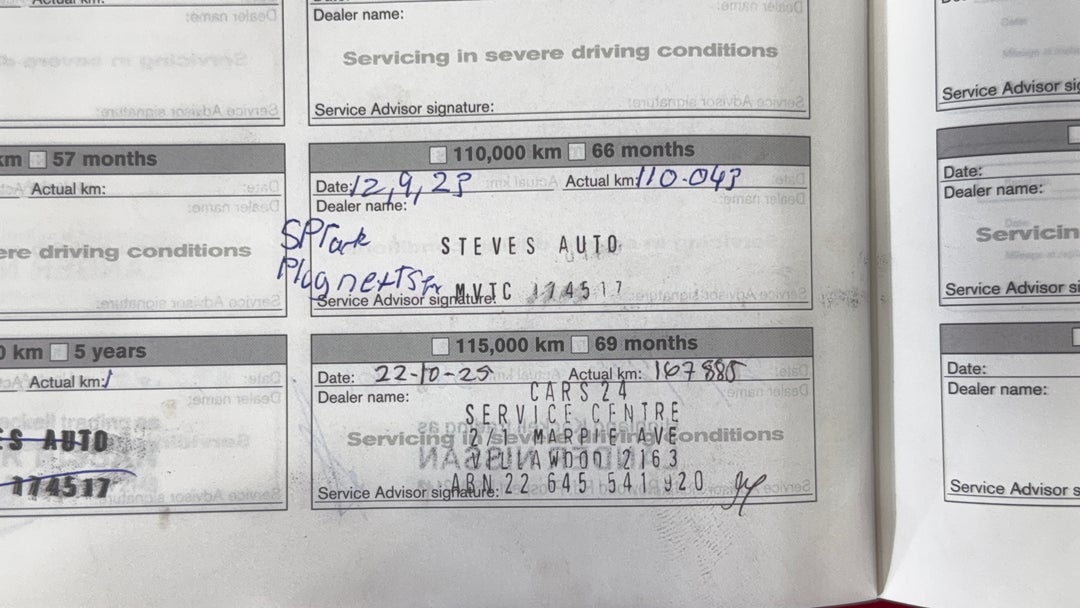 Actual km:
Dealer name:
Servicing in severe driving conditions
Service Advisor signature:
Service Advisor sig
km 57 months
Actual km:
ere driving conditions
110,000 km 66 months
Date: 12,9,23 Actual km: 110-043
Dealer name:
SPTark
STEVES AUTO
Plug nextSer
MVTC 174517
Service Advisor signature:
Date:
Dealer name:
Servicin
Service Advisor si
0 km 5 years
Actual km:
S AUTO
174517
115,000 km 69 months
Date: 22-10-25 Actual km: 167885
Dealer name:
CARS24
SERVICE CENTRE
Servicing in severe driving conditions
2/1 AVE
2163
ABN 22 645 541 920
Service Advisor signature:
Date:
Dealer name:
Service Advisor s